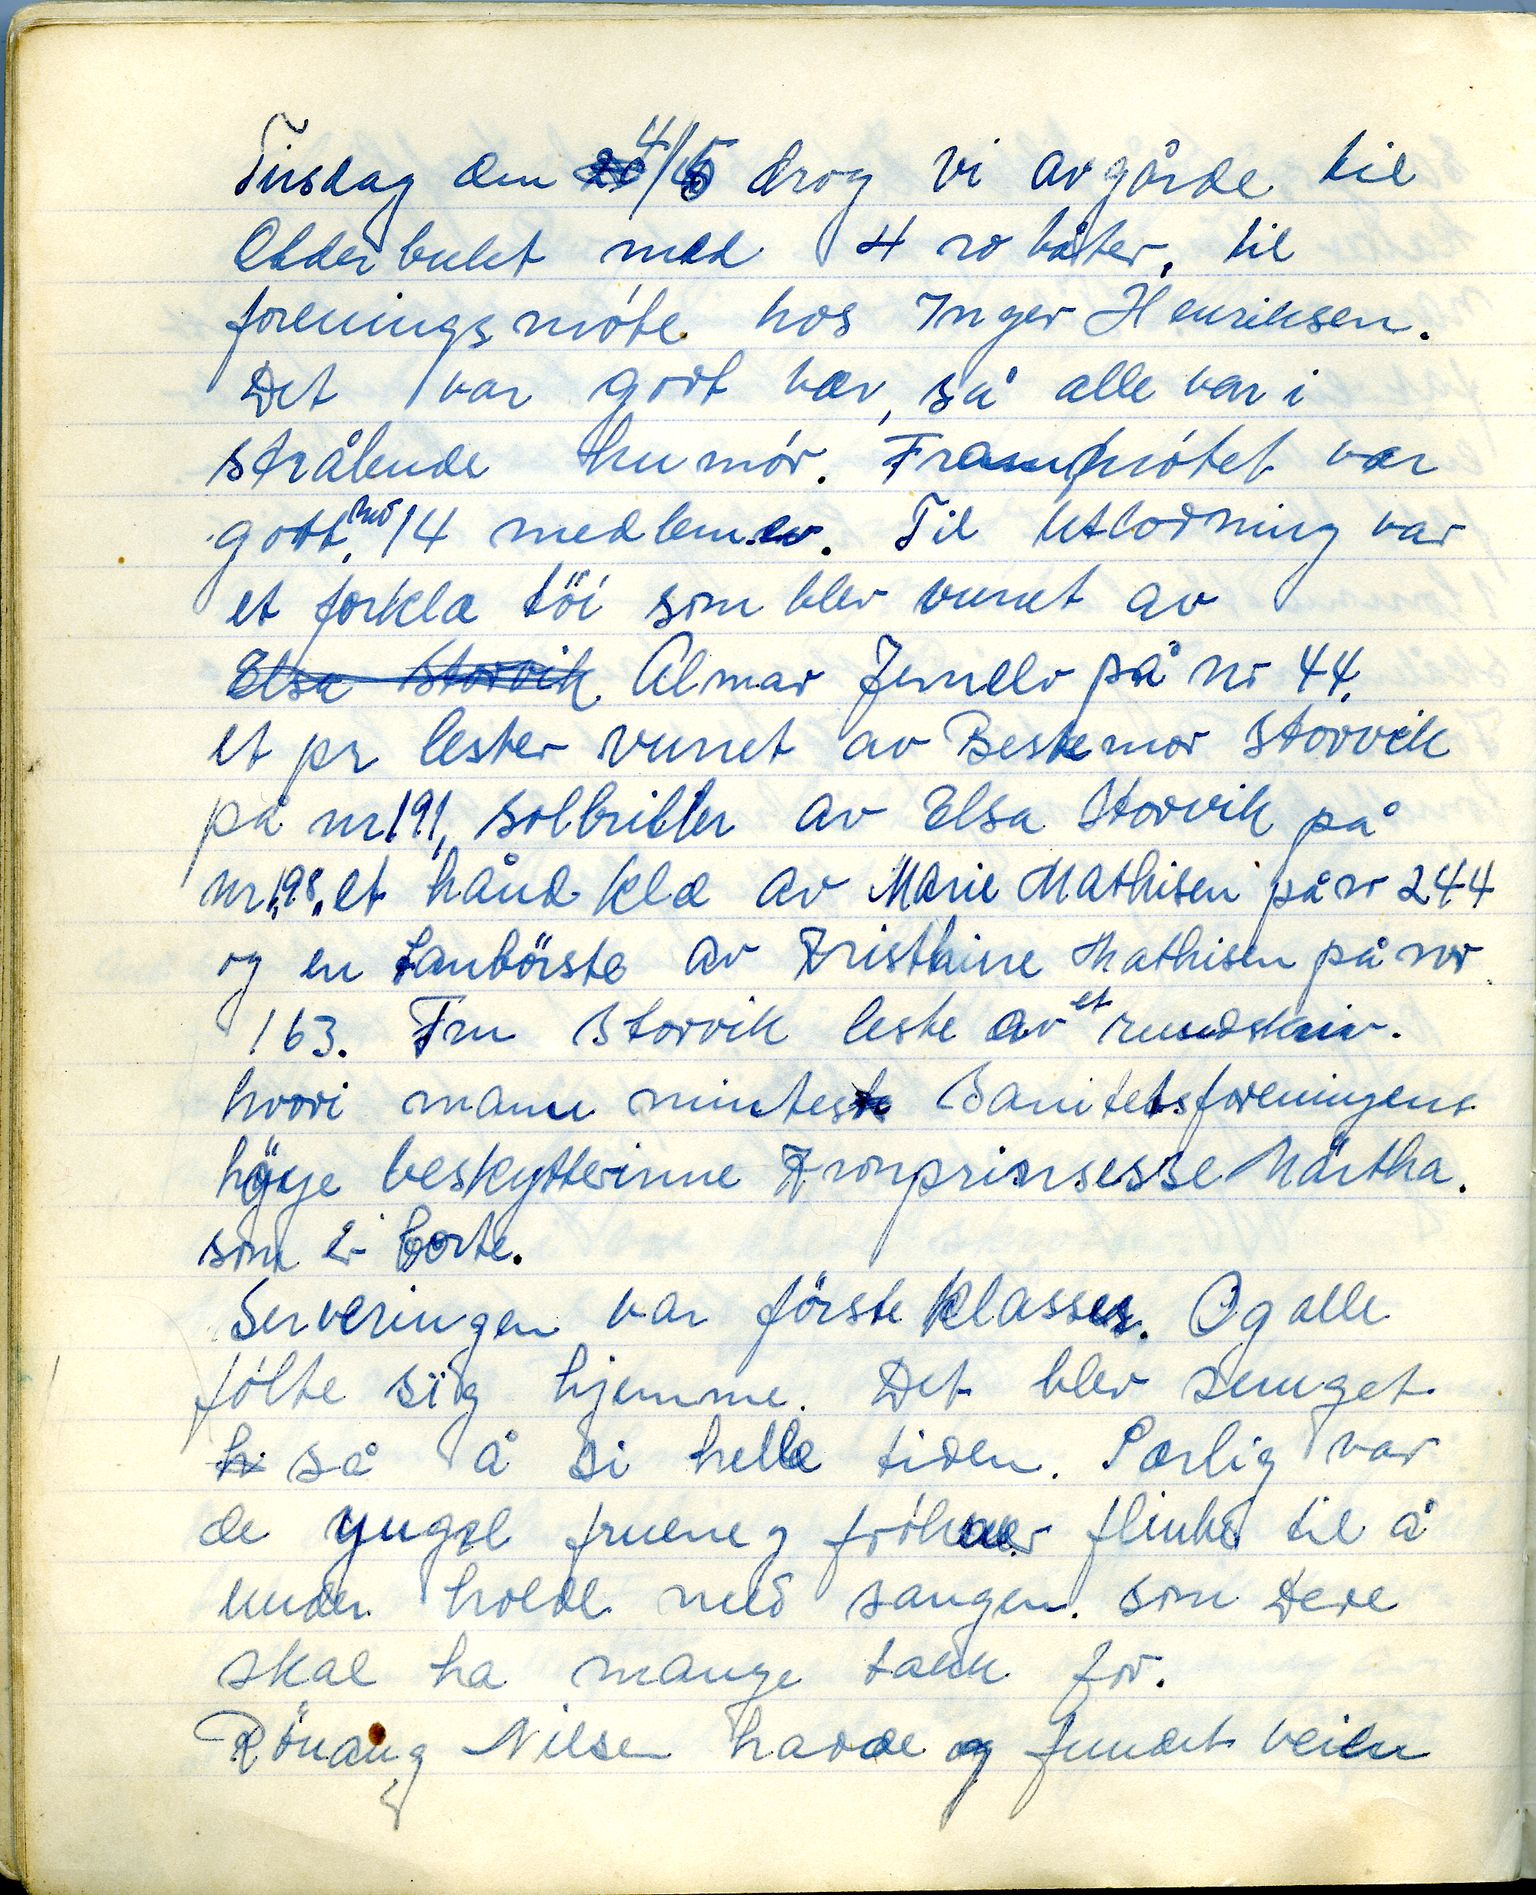 Tirsdag den 4/5 drog vi avgårde til
Olderbukt med 4 ro båter, til
foreningsmöte hos Inger Henriksen.
Det var godt vær, så alle var i
strålende humör. Frammötet var
godt, med 14 medlemer. Til utlodning var
et forklæ töi som blev vunet av
Elsa Storvik Almar Jernelv på nr 44.
et pr lester vunet av Bestemor Storvik
på nr 191, solbriller av Elsa Storvik på
nr. 198. et håndklæ av Marie Mathisen på nr 244
og en tanbörste av Kristhine Mathisen på nr
163. Fru Storvik leste av et rundskriv.
hvori mann mintes Sanitetsforeningens
höye beskytterinne Kronprinsesse Märtha.
som er borte.
Serveringen var förste klasses. Og alle
fölte sig hjemme. Det blev sunget
så å si helle tiden. Særlig var
de yngre fruene og fröknær flinke til å
under holde med sangen. som Dere
skal ha mange takk for.
Rönaug Nilsen hadde og fundet veien